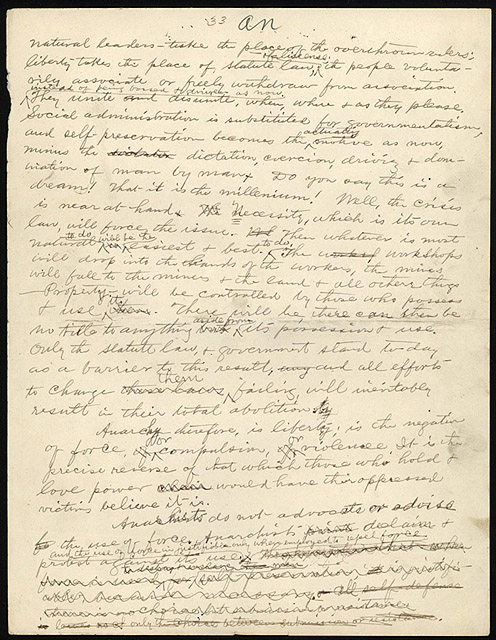 33 an
natural leaders - take the place of the overthrown rulers;
liberty takes the place of statute law; the people volunta-
rily associate or freely withdraw from association.
instead of being bossed or driven as now.
They unite and disunite, when, where & as they please,
Social administration is substituted for governmentalism,
and self preservation becomes the actually motive as now,
minus the dictation, coercion, driving & dom-
ination of man by man. Do you say this is a
dream! That it is the millenium! Well, the crisis
is near at hand. Necessity, which is its own
law, will force the issue. Then whatever is most
natural to do will be the easiest & best to do. The workshops
will drop into the hands of the workers, the mines
will fall to the miners & the land & all other things
- Property - will be controlled by those who possess
& use it. There will be, there can then be
no title to anything aside from its possession & use.
Only the statute law & government stand to-day
as a barrier to this result, and all efforts
to change these laws them failing will inevitably
result in their total abolition.
Anarchy therefore, is liberty; is the negation
of force, or compulsion, or violence. It is the
precise reverse of that which those who hold &
love power would have their oppressed
victims believe it is.
Anarchists do not advocate or advise
the use of force. Anarchists disclaim &
protest against its use
and the use of force is justifiable only when employed to repel force
all self defense